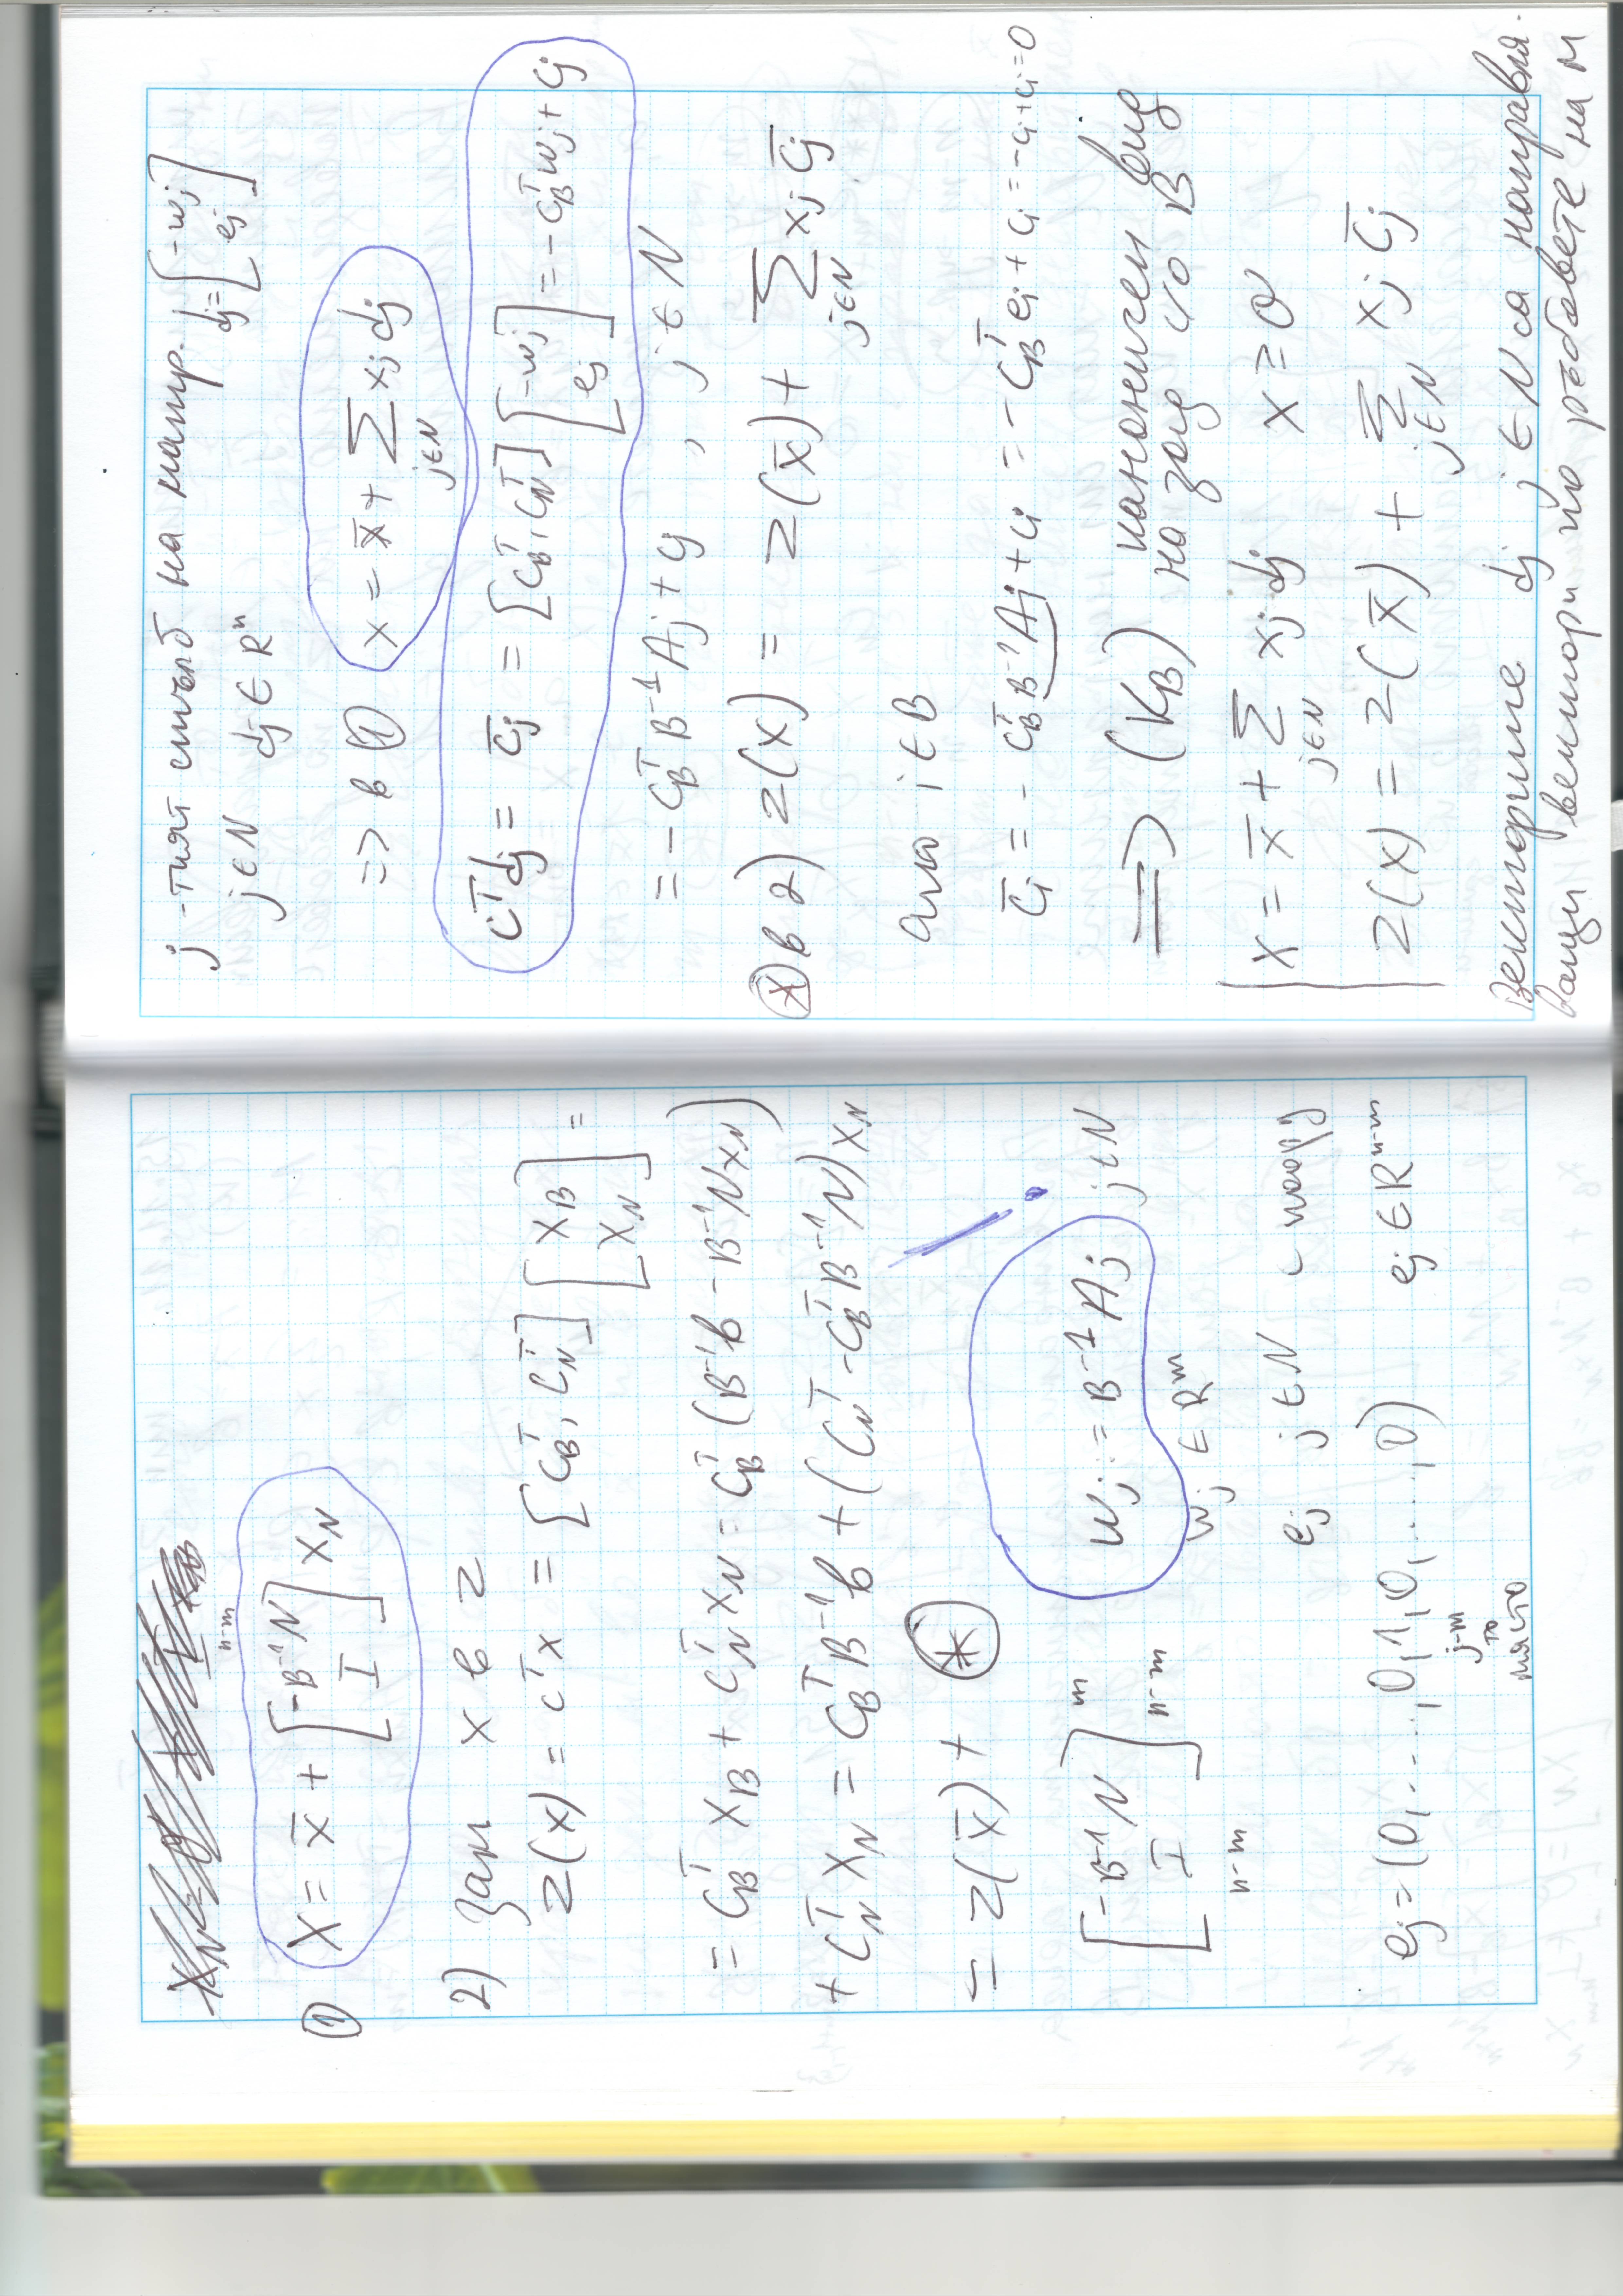 ① x = x̄ + [-B⁻¹N / I] x_N
n-m
2) Зам x в z
z(x) = cᵀx = [c_Bᵀ, c_Nᵀ] [x_B / x_N] =
= c_Bᵀ x_B + c_Nᵀ x_N = c_Bᵀ (B⁻¹b - B⁻¹N x_N)
+ c_Nᵀ x_N = c_Bᵀ B⁻¹b + (c_Nᵀ - c_Bᵀ B⁻¹N) x_N
= z(x̄) + ⊛
[-B⁻¹N / I] m n-m n-m
w_j := B⁻¹A_j j ∈ N
w_j ∈ Rᵐ
e_j j ∈ N
e_j = (0, ..., 0, 1, 0, ..., 0) e_j ∈ Rⁿ⁻ᵐ
j-m
то
място
j-тият стълб на напр. d_j = [-w_j / e_j]
j ∈ N d_j ∈ Rⁿ
=> в ① x = x̄ + ∑_{j∈N} x_j d_j
cᵀd_j = c̄_j = [c_Bᵀ, c_Nᵀ] [-w_j / e_j] = -c_Bᵀ w_j + c_j
= -c_Bᵀ B⁻¹A_j + c_j , j ∈ N
ⓧ в 2) z(x) = z(x̄) + ∑_{j∈N} x_j c̄_j
ако i ∈ B
c̄_i = -c_Bᵀ B⁻¹A_j + c_i = -c_Bᵀ e_i + c_i = -c_i + c_i = 0
=> (K_B) каноничен вид
на зад. по B
x = x̄ + ∑_{j∈N} x_j d_j x ≥ 0
z(x) = z(x̄) + ∑_{j∈N} x_j c̄_j
Векторите d_j j ∈ N са направля-
ващи вектори по ръбовете на M